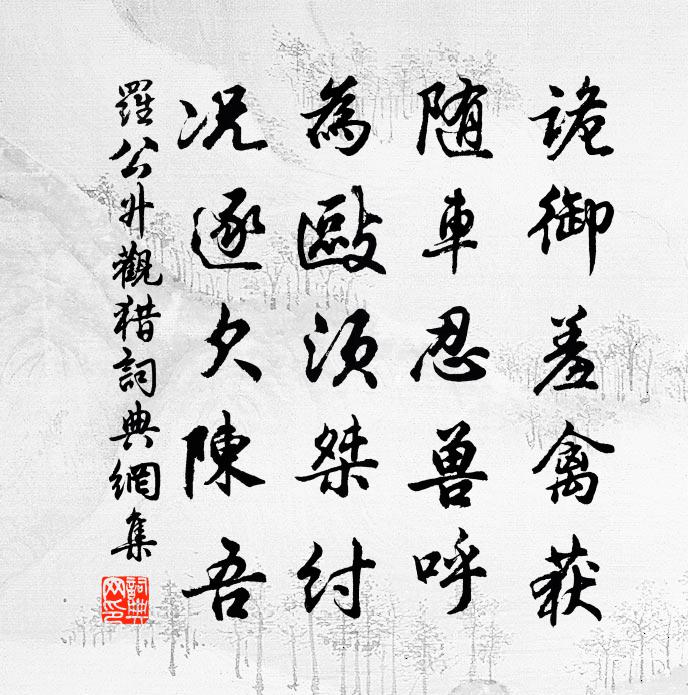 詭御羞禽获
随車忍兽呼
為敺須桀紂
况逐欠陳吾
羅公升觀猎詞典網集
詞典网印